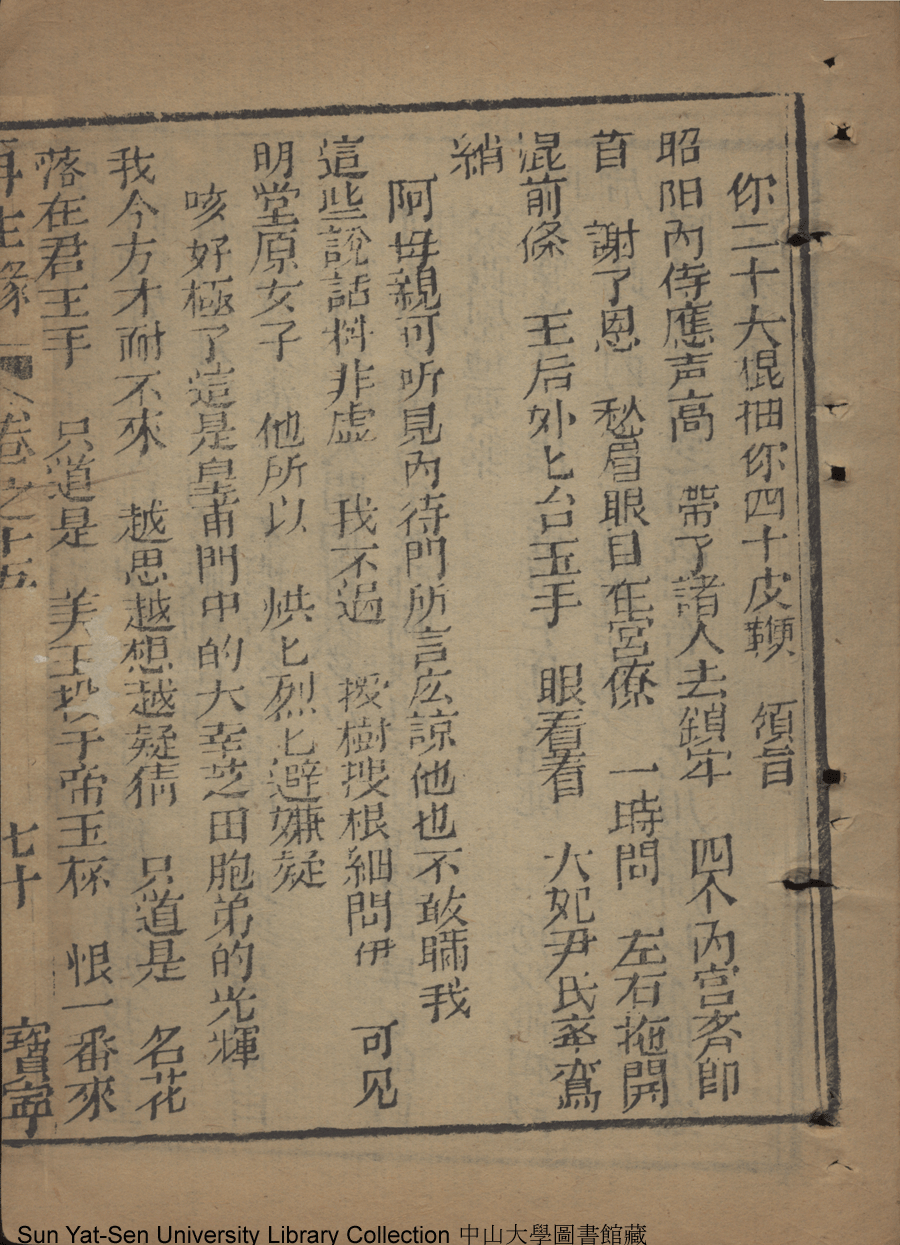 你二十大棍抽你四十皮鞭　領旨
昭阳內侍應声高　帶了諸人去鎖牢　四个內宮斉卽
首　謝了恩　愁眉眼目在宮僚　一時問　左右拖開
混前條　王后外匕台玉手　眼看看　大妃尹氏率鸞
綃
阿母親可听見內待門所言庅諒他也不敢瞞我
這些說話料非虛　我不過　援樹搜根細問伊　可见
明堂原女子　他所以　烘匕烈匕避嫌疑
咳好極了這是皇甫門中的大幸芝田胞弟的光輝
我今方才耐不來　越思越想越疑猜　只道是　名花
落在君王手　只道是　美玉投于帝玉杯　恨一番來
再生緣　卷之十五　七十　寶寧
Sun Yat-Sen University Library Collection 中山大學圖書館藏